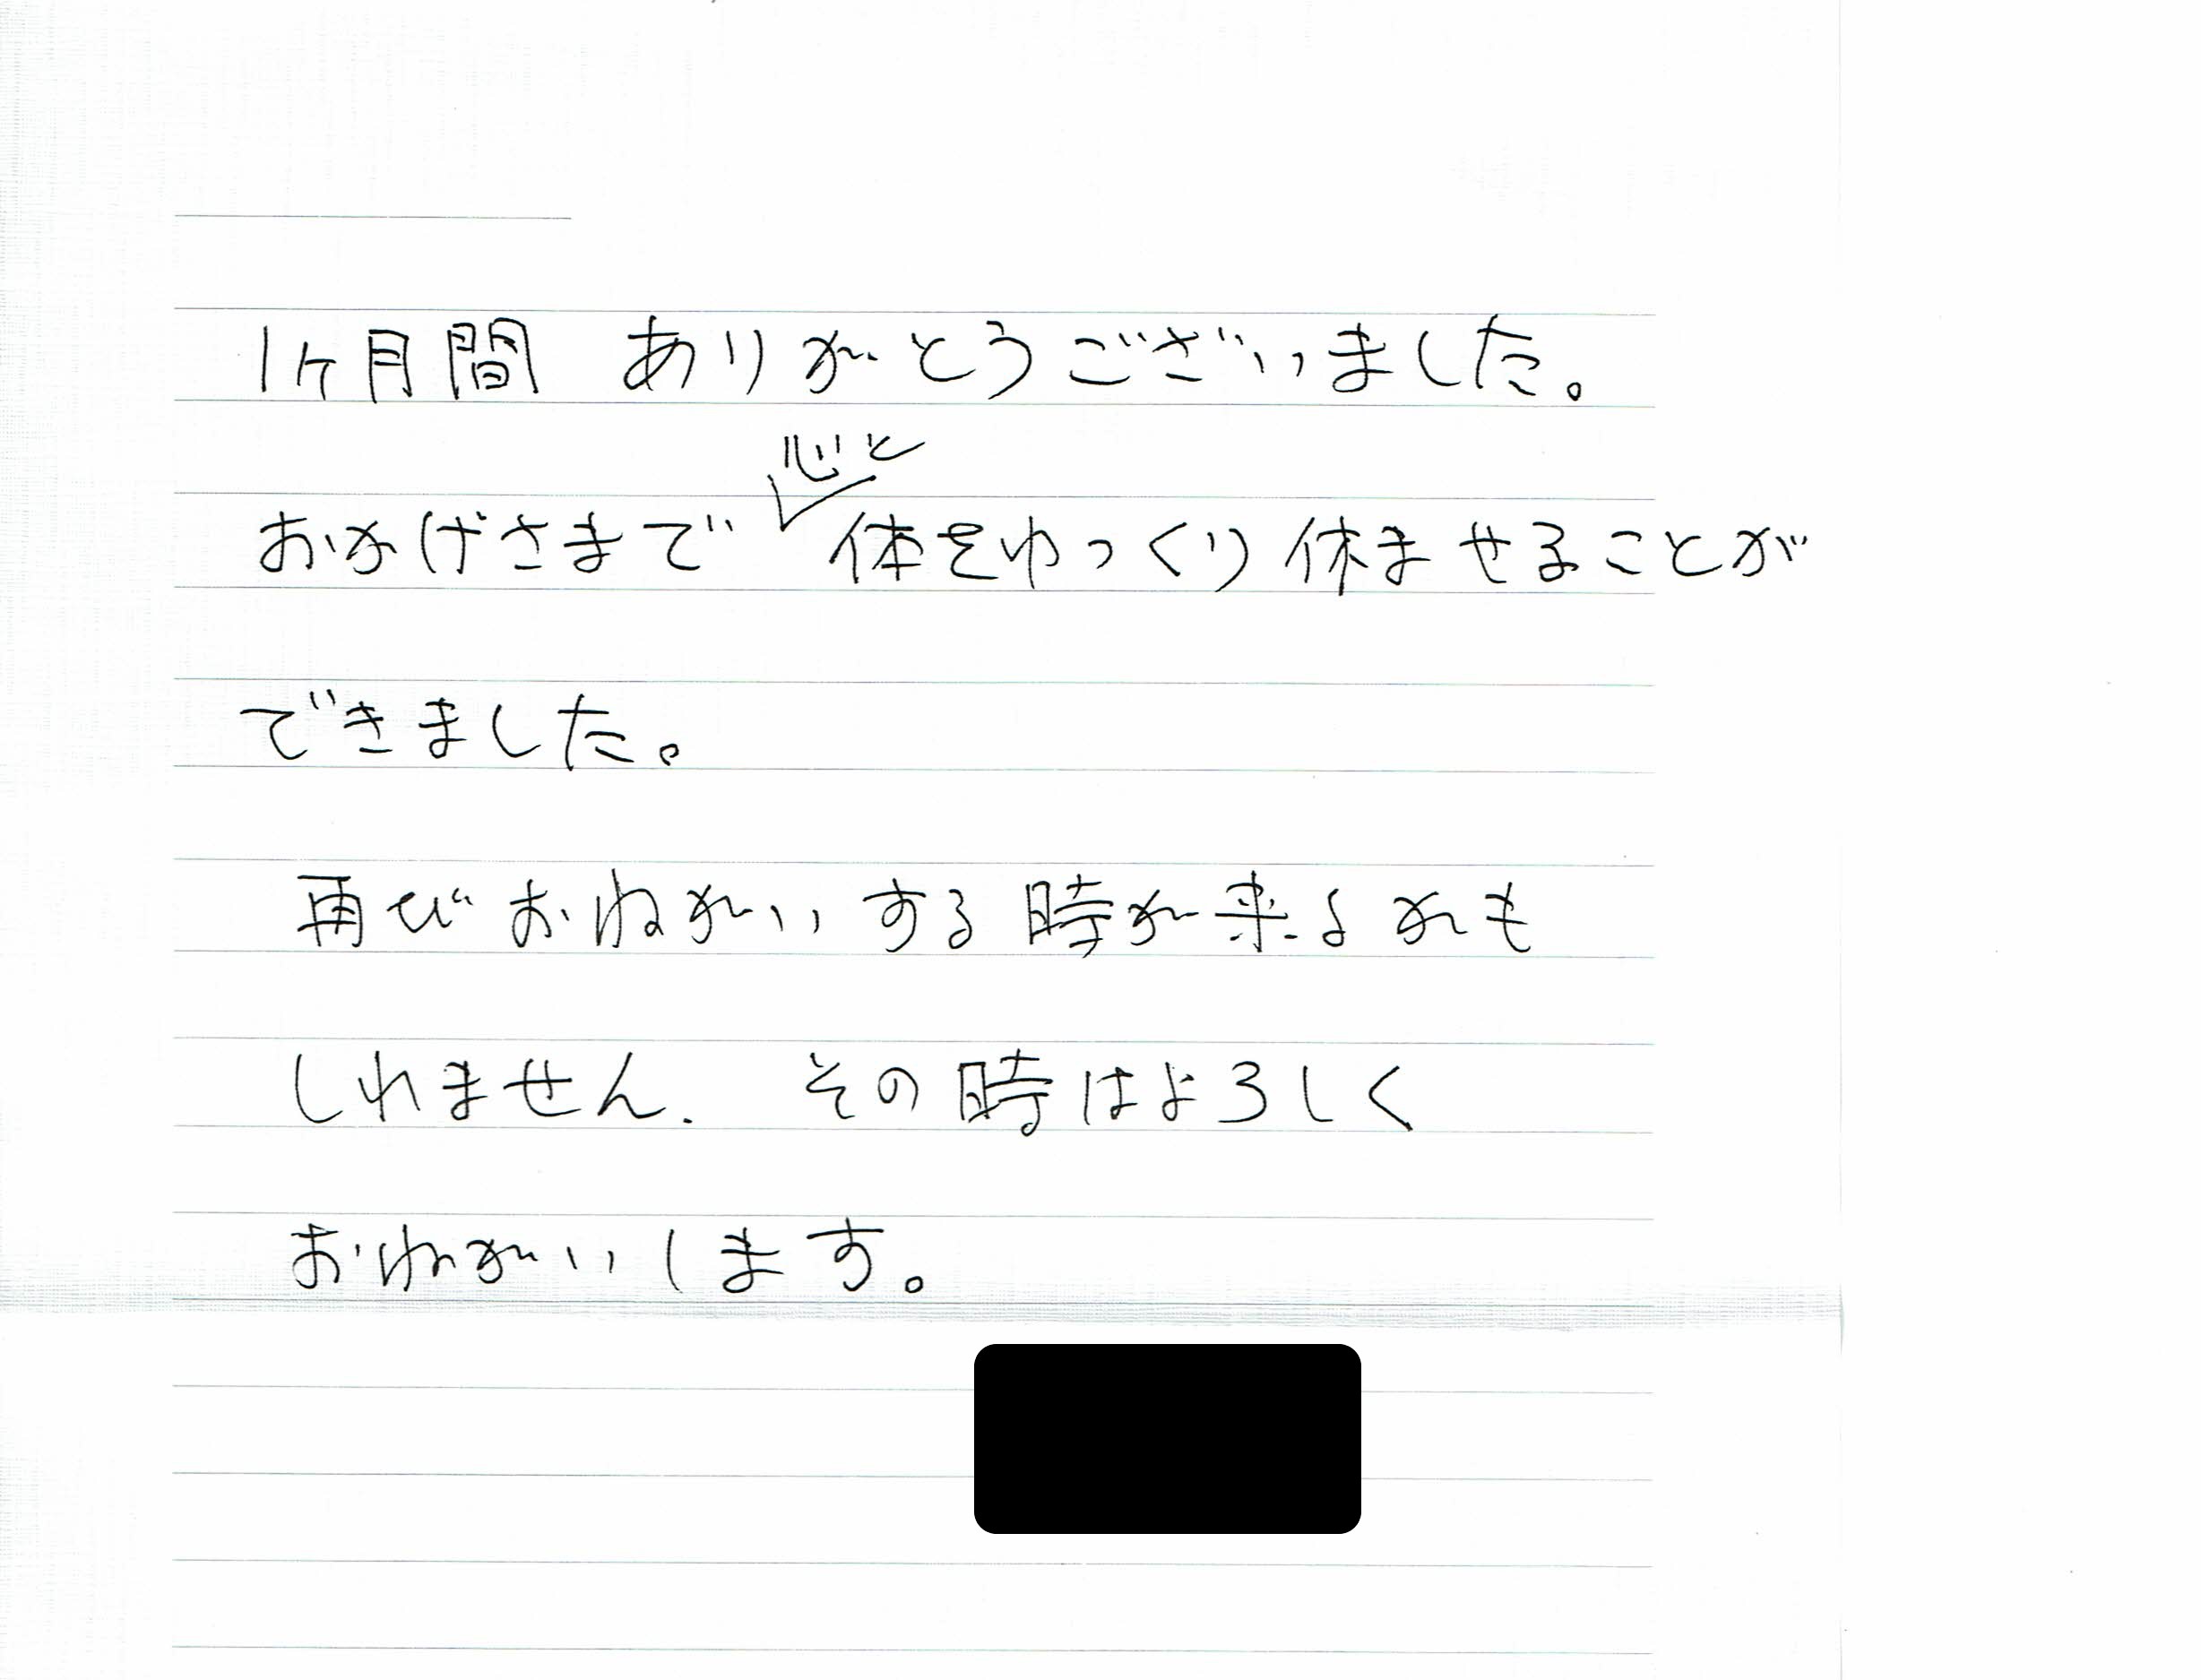 1ヶ月間 ありがとうございました。
心と
おかげさまで 体をゆっくり休ませることが
できました。
再びおねがいする時が来るかも
しれません. その時はよろしく
おねがいします。